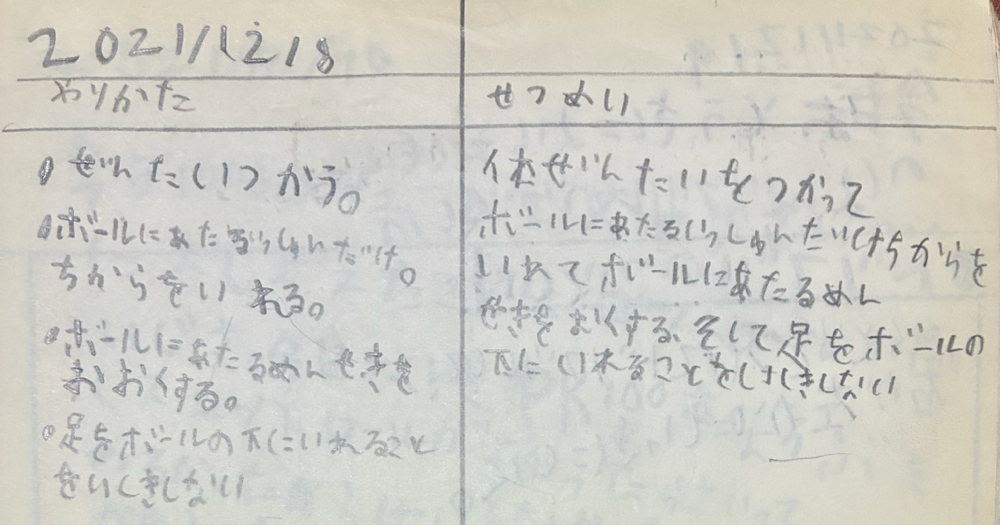 2021/12/8
やりかた
・ぜんたいつかう。
・ボールにあたるいっしゅんだけ。
ちからをいれる。
・ボールにあたるめんせきを
おおくする。
・足をボールの下にいれること
をいしきしない
せつめい
体ぜんたいをつかって
ボールにあたるいっしゅんだけちからを
いれてボールにあたるめん
せきをおくする、そして足をボールの
下にいれることをしきしない